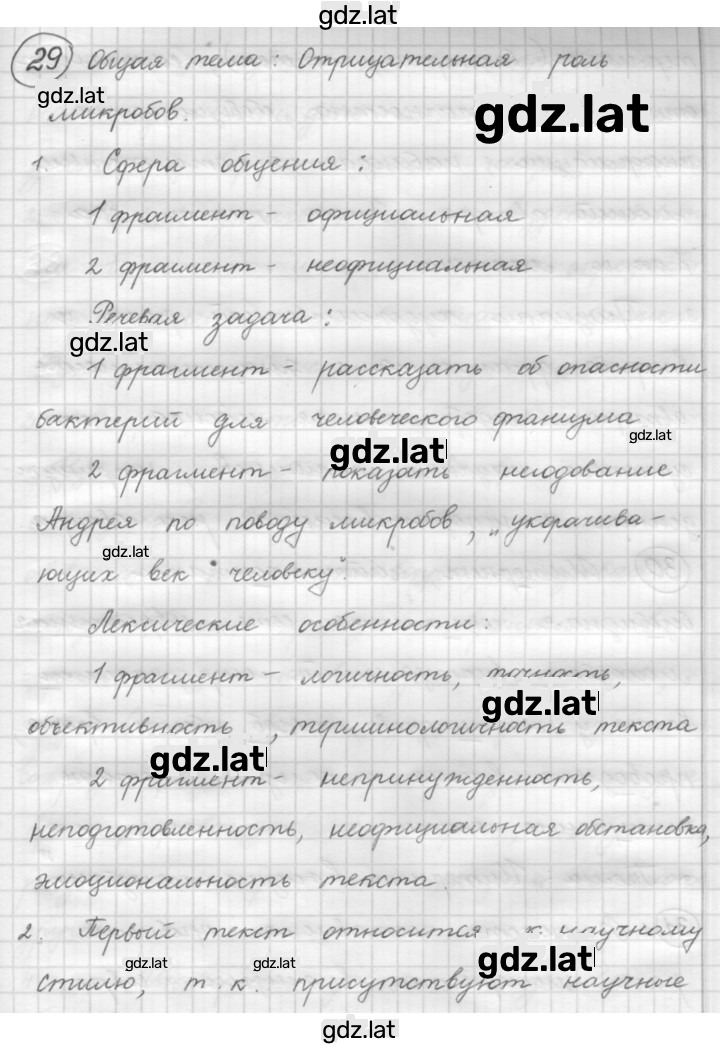 gdz.lat
29 Общая тема: Отрицательная роль
gdz.lat
микробов.
gdz.lat
1. Сфера общения:
1 фрагмент - официальная
2 фрагмент - неофициальная
Речевая задача:
gdz.lat
1 фрагмент - рассказать об опасности
бактерий для человеческого фганизма
gdz.lat
gdz.lat
2 фрагмент - показать негодование
Андрея по поводу микробов, „укорачива-
gdz.lat
ющих век " человеку".
Лексические особенности:
1 фрагмент - логичность, точность,
gdz.lat
объективность, терминологичность текста
gdz.lat
2 фрагмент - непринужденность,
неподготовленность, неофициальная обстановка,
эмоциональность текста.
2. Первый текст относится к научному
gdz.lat gdz.lat gdz.lat
стилю, т.к. присутствуют научные
gdz.lat